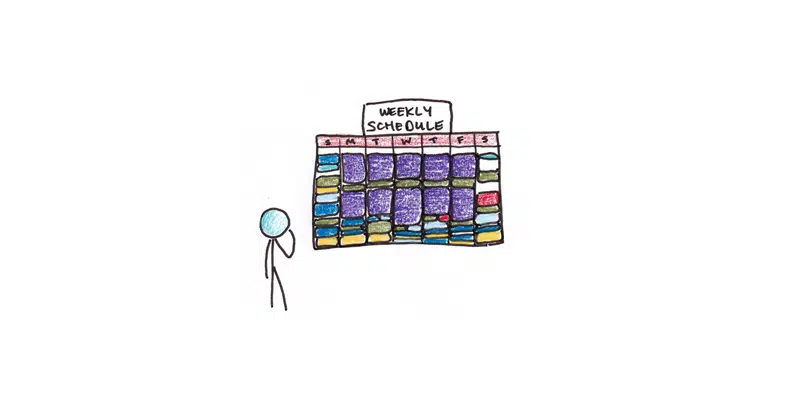 WEEKLY
SCHEDULE
S M T W T F S